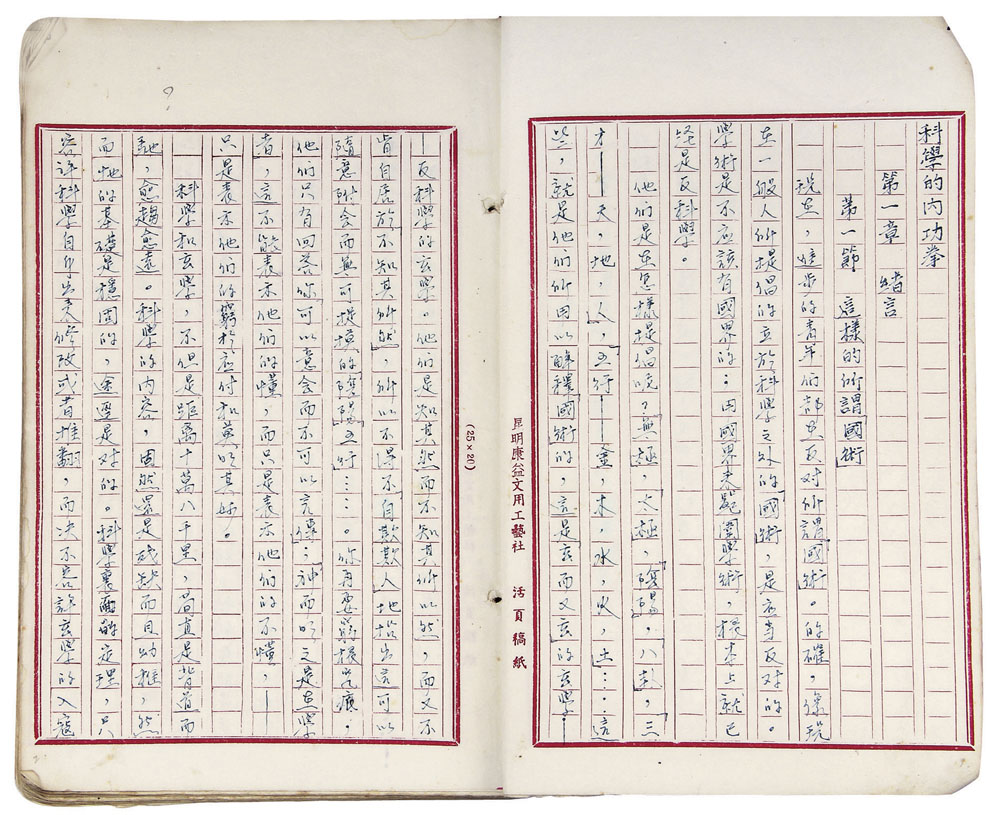 科學的內功拳
第一章　緒言
第一節　這樣的所謂「國術」
現在，進步的青年們都是反对所謂「國術」的。的確，像現
在一般人所提倡的立於科學之外的「國術」，是应当反对的。
學術是不应該有國界的：用國界來範圍學術，根本上就已
經是反科學。
他們是在怎樣提倡呢？「無極，太極，「陰陽，八卦，三
才——天，地，人，「五行——金，木，水，火，土……這
些，就是他們所用以解釋「國術」的，這是玄而又玄的玄學！——
—反科學的玄學。他們是知其然而不知其所以然，而又不
肯自居於「不知其所以然」，所以不得不「自欺欺人」地指出這可以
隨意附会而無可捉摸的「陰陽五行」……。你再要尋根究底，
他們只有回答你「可以意会而不可以言傳」：「神而明之是在學
者」，這不能表示他們的懂，而只是表示他們的不懂，—
只是表示他們的窮於应付和莫明其妙。
科學和玄學，不但是距离十萬八千里，簡直是背道而
馳，愈趨愈遠。科學的内容，固然還是殘缺而且幼稚，然
而牠的基礎是穩固的，途逕是对的。科學裏面的定理，只
容许科學自身出來修改或者推翻，而决不容許玄學的入寇
昆明康益文用工藝社　活頁稿紙
(25×20)
?